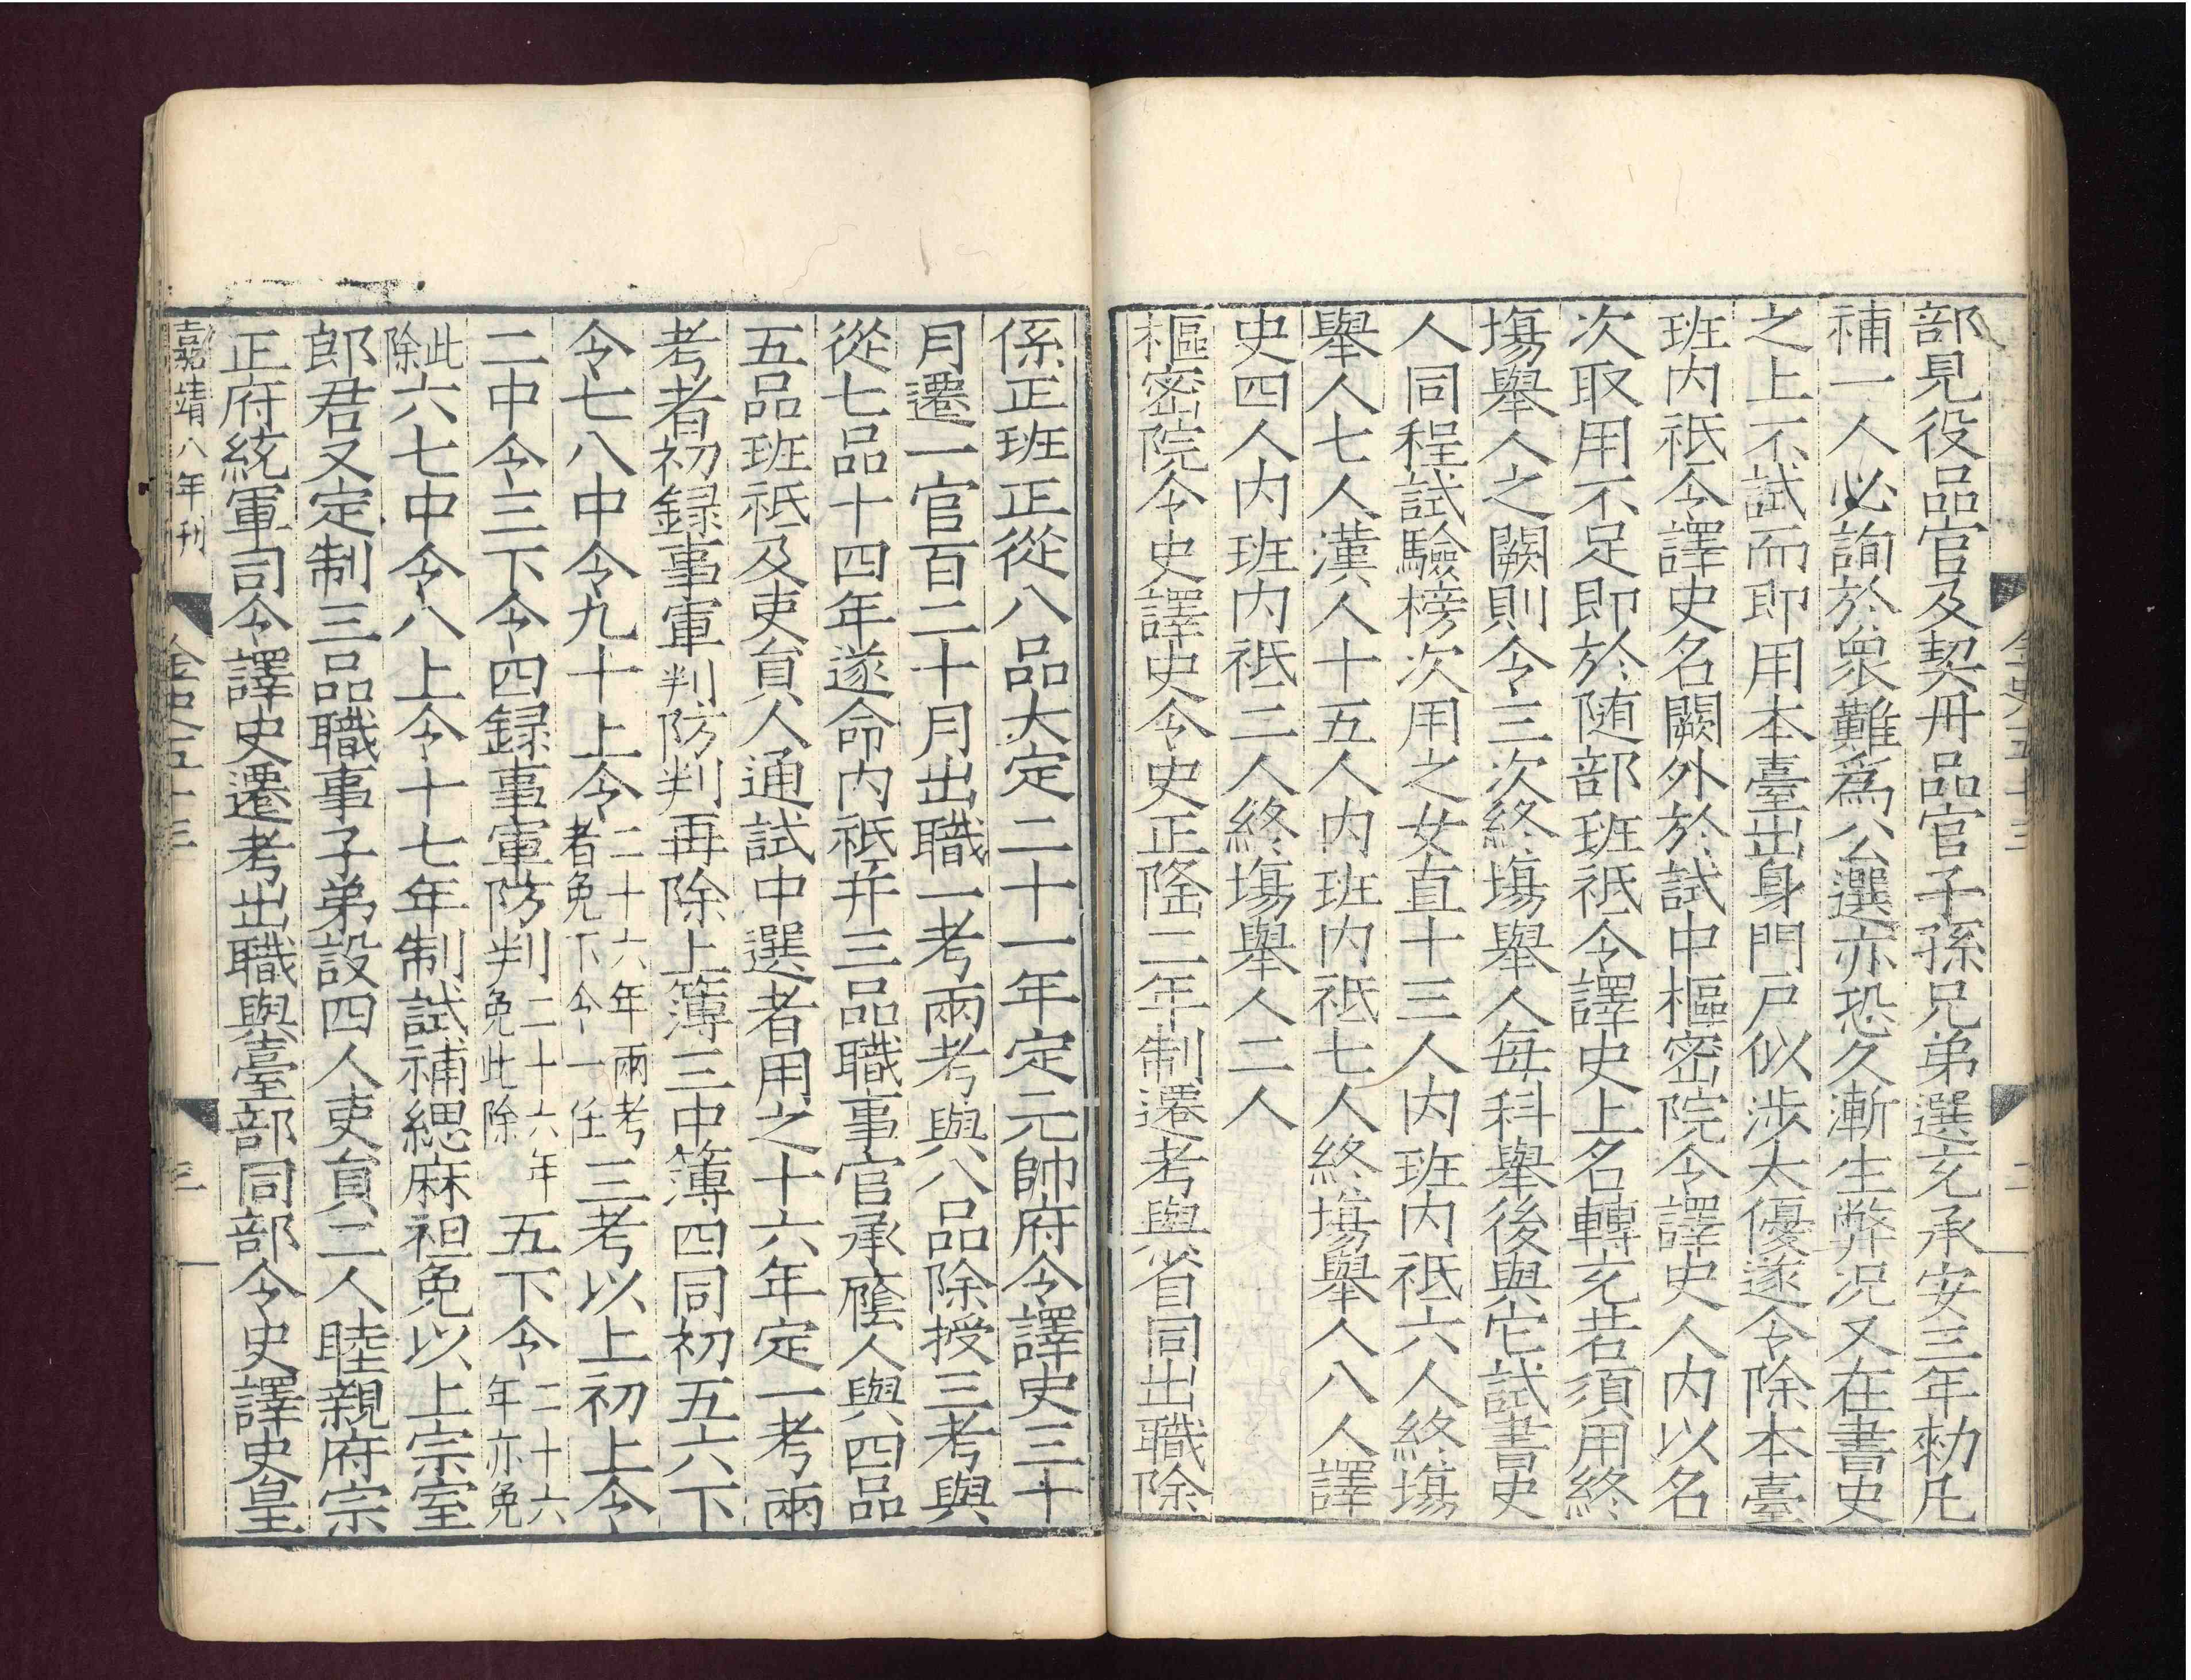 金史五十三
二
部見役品官及契丹品官子孫兄弟選充承安三年勑凡
補一人必詢於衆難爲公選亦恐久漸生弊况又在書史
之上不試而即用本臺出身門戶似涉太優遂令除本臺
班内祗令譯史名闕外於試中樞密院令譯史人内以名
次取用不足即於随部班祗令譯史上名轉充若須用終
塲舉人之闕則令三次終塲舉人每科舉後與它試書史
人同程試驗榜次用之女直十三人内班内祗六人終塲
舉人七人漢人十五人内班内祗七人終塲舉人八人譯
史四人内班内祗二人終塲舉人二人
樞密院令史譯史令史正隆二年制遷考與省同出職除
係正班正從八品大定二十一年定元帥府令譯史三十
月遷一官百二十月出職一考兩考與八品除授三考與
從七品十四年遂命内祗并三品職事官承廕人與四品
五品班祗及吏貟人通試中選者用之十六年定一考兩
考者初録事軍判防判再除上簿三中簿四同初五六下
令七八中令九十上令二十六年兩考者免下令一任三考以上初上令
二中令三下令四録事軍防判二十六年免此除五下令二十六年亦免
此除六七中令八上令十七年制試補緦麻袒免以上宗室
郎君又定制三品職事子弟設四人吏貟二人睦親府宗
正府統軍司令譯史遷考出職與臺部同部令史譯史皇
嘉靖八年刊
金史五十三
三